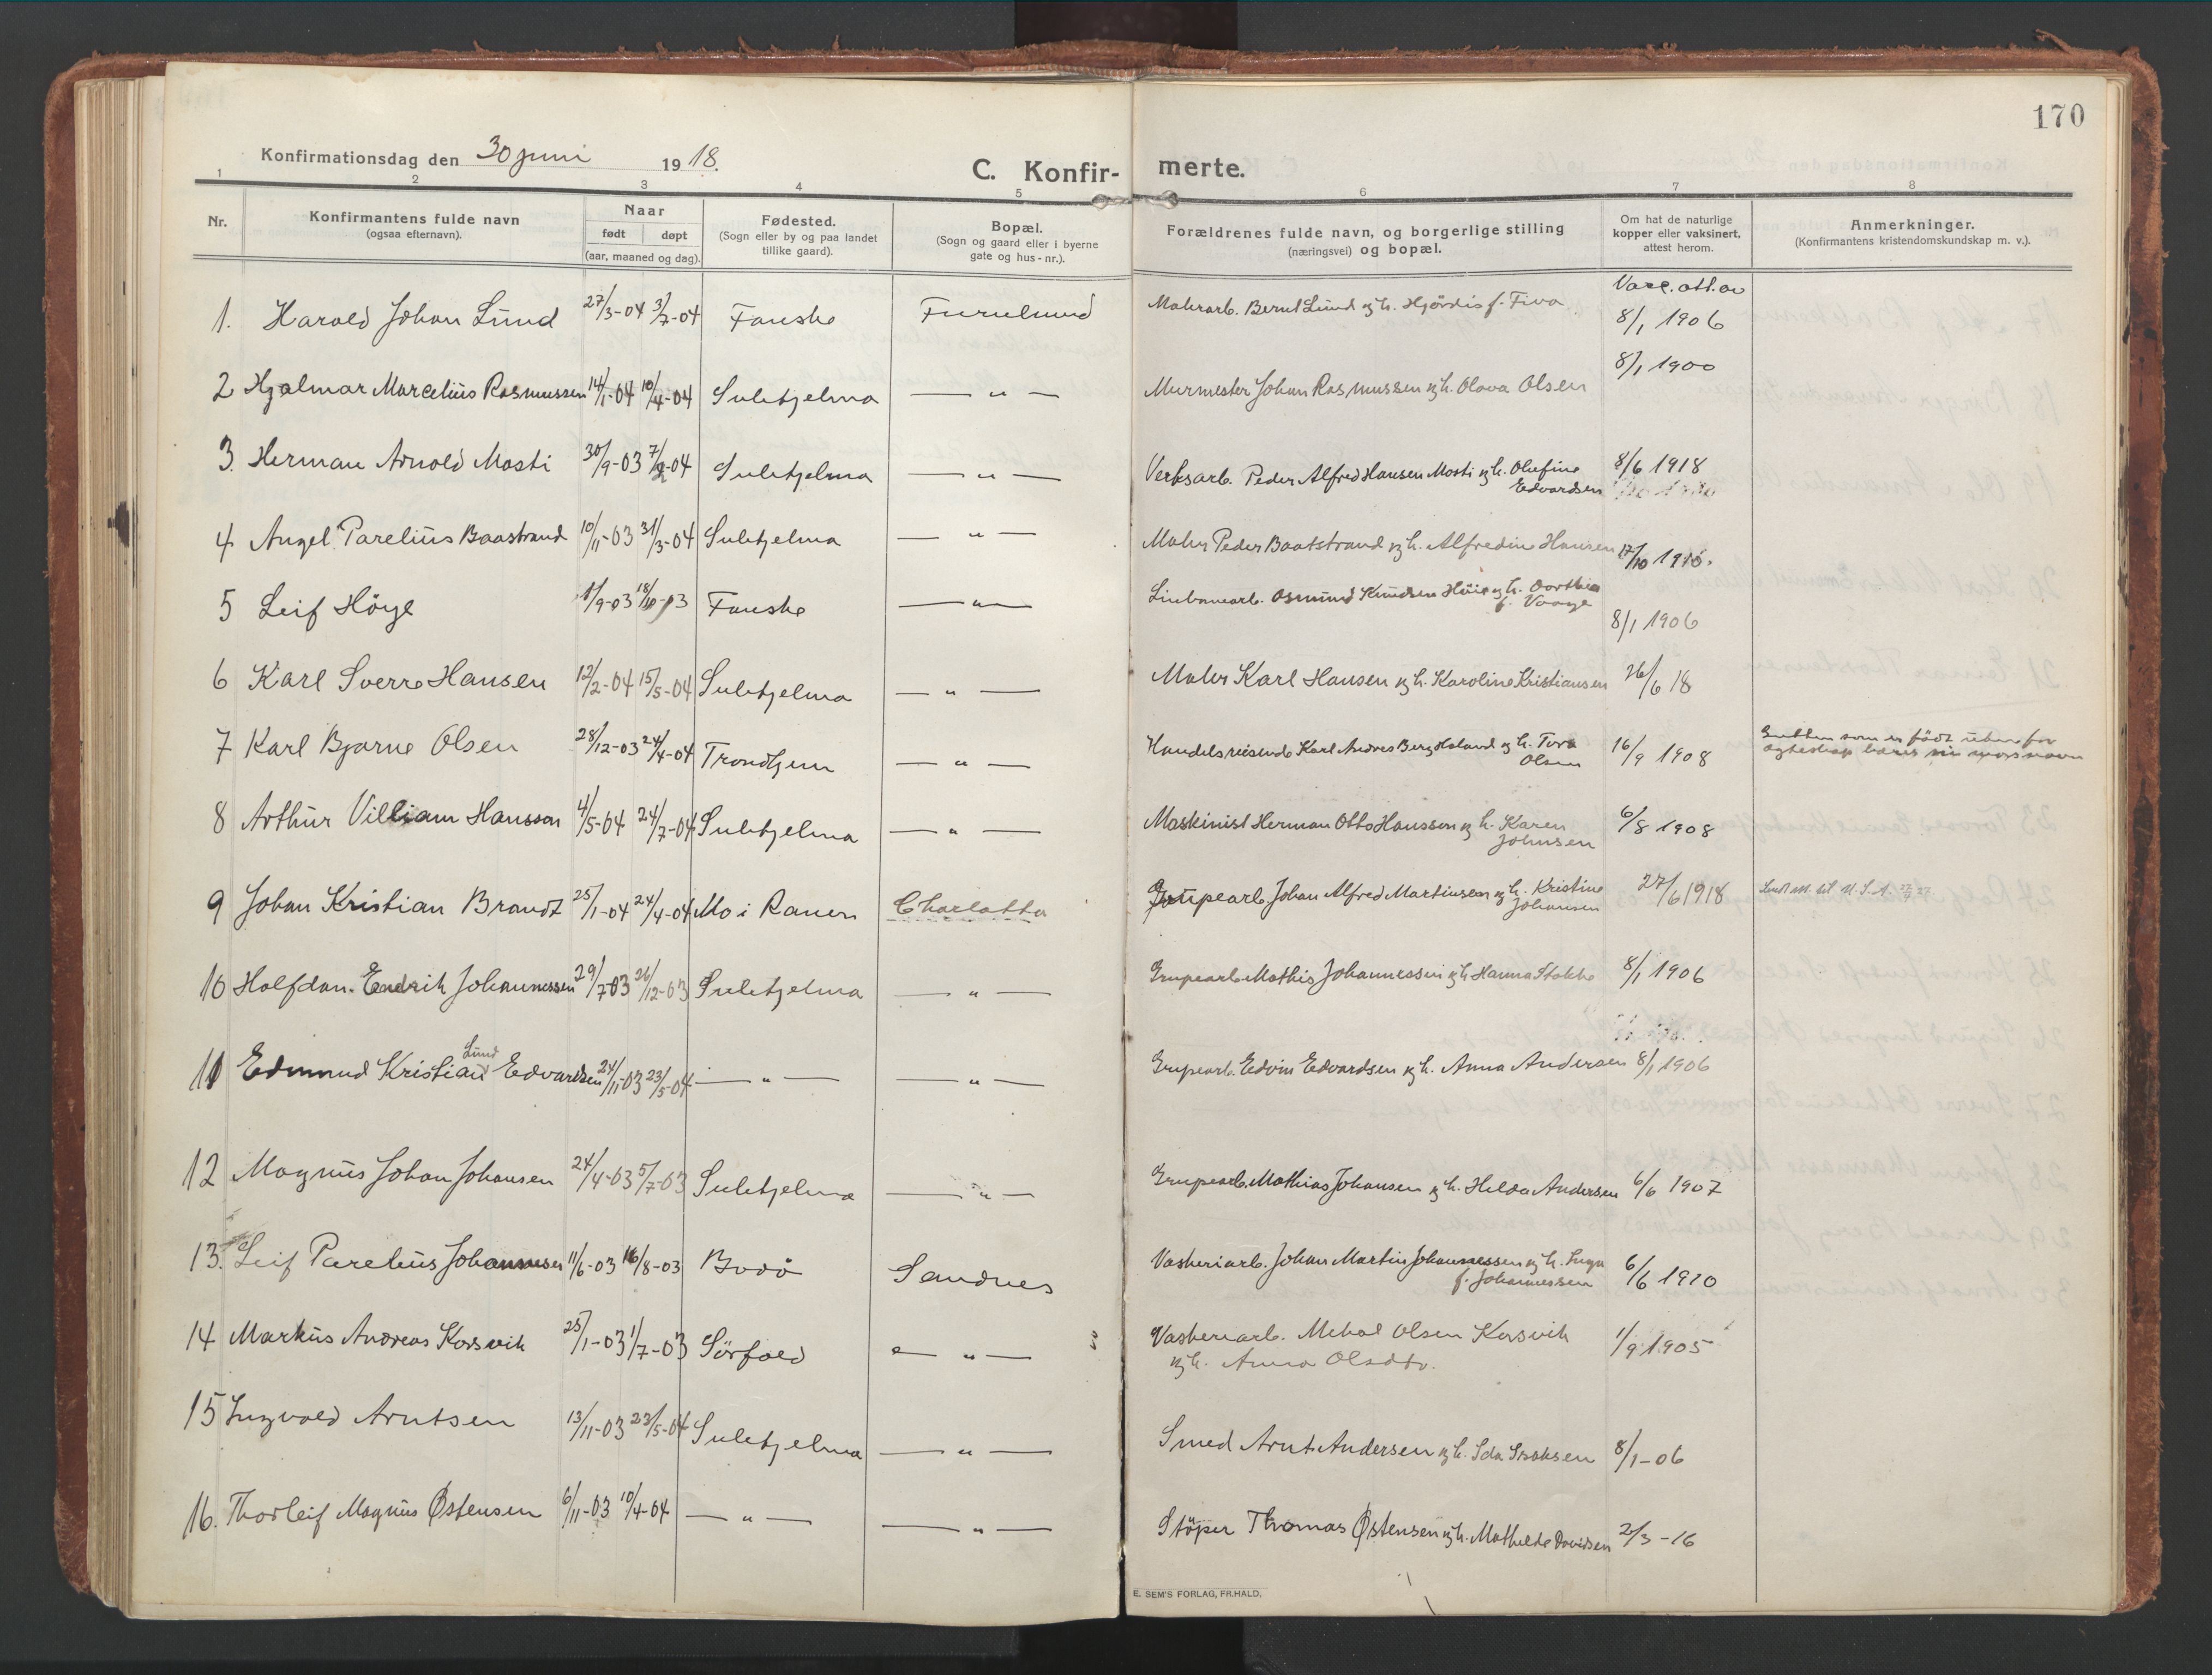 170
Konfirmationsdag den 30 juni 1918.
C. Konfir- merte.
1 2 3 4 5 6 7 8
Nr.
Konfirmantens fulde navn
(ogsaa efternavn).
Naar
født døpt
(aar, maaned og dag).
Fødested.
(Sogn eller by og paa landet
tillike gaard).
Bopæl.
(Sogn og gaard eller i byerne
gate og hus-nr.).
Forældrenes fulde navn, og borgerlige stilling
(næringsvei) og bopæl.
Om hat de naturlige
kopper eller vaksinert,
attest herom.
Anmerkninger.
(Konfirmantens kristendomskundskap m. v.).
Vacc. att. av
1. Harald Johan Lund 27/3-04 3/7-04 Fauske Furulund Malerarb. Bernt Lund og h. Hjørdis f. Fiva 8/1 1906
2 Hjalmar Marcelius Rasmussen 14/1-04 10/4-04 Sulitjelma — " — Murmester Johan Rasmussen og h. Olava Olsen 8/1 1900
3. Herman Arnold Mosti 30/9-03 7/2-04 Sulitjelma — " — Verksarb. Peder Alfred Hansen Mosti og h. Olufine 8/6 1918
Edvardsen
4 Angel Parelius Baastrand 10/11-03 31/3-04 Sulitjelma — " — Maler Peder Baatstrand og h. Alfredine Hansen 17/10 1916.
5 Leif Høye 1/9-03 18/10-03 Fauske — " — Linbanearb. Osmund Knudsen Høie og h. Dorthea
f. Vaage
8/1 1906
6 Karl Sverre Hansen 12/2-04 15/5-04 Sulitjelma — " — Maler Karl Hansen og h. Karoline Kristiansen 26/6 18
7 Karl Bjarne Olsen 28/12-03 24/4-04 Trondhjem — " — Handelsreisende Karl Andres Berg Høland og h. Tora 16/9 1908 Gutten som er født utenfor
Olsen egteskap bærer sin mors navn
8 Arthur Villiam Hansson 4/5-04 24/7-04 Sulitjelma — " — Maskinist Herman Otto Hansson og h. Karen 6/8 1908
Johnsen
9 Johan Kristian Brandt 25/1-04 24/4-04 Mo i Ranen Charlotta Grupearb. Johan Alfred Martinsen og h. Kristine 27/6 1918
Johansen
10 Halfdan Endrik Johannessen 29/7-03 26/12-03 Sulitjelma — " — Grupearb. Mathis Johannessen og h. Hanna Stokke 8/1 1906
11 Edmund Kristian Lund Edvardsen 24/11-03 23/5-04 — " — — " — Grupearb. Edvin Edvardsen og h. Anna Andersen 8/1 1906
12 Magnus Johan Johansen 24/4-03 5/7-03 Sulitjelma — " — Grupearb. Mathias Johansen og h. Hilda Andersen 6/6 1907
13. Leif Parelius Johannesen 11/6-03 16/8-03 Bodø Sandnes Vaskeriarb. Johan Martin Johannessen og h. Inga 6/6 1910
f. Johannessen
14 Markus Andreas Korsvik 25/1-03 1/7-03 Sørfold — " — Vaskeriarb. Mekal Olsen Korsvik 1/9 1905
og h. Anna Olsdtr.
15 Ingvald Arntsen 13/11-03 23/5-04 Sulitjelma — " — Smed Arnt Andersen og h. Ida Isaksen 8/1-06
16. Thorleif Magnus Østensen 6/11-03 10/4-04 — " — — " — Støper Thomas Østensen og h. Mathilde Davidsen 2/3-16
E. SEM'S FORLAG, FR.HALD.